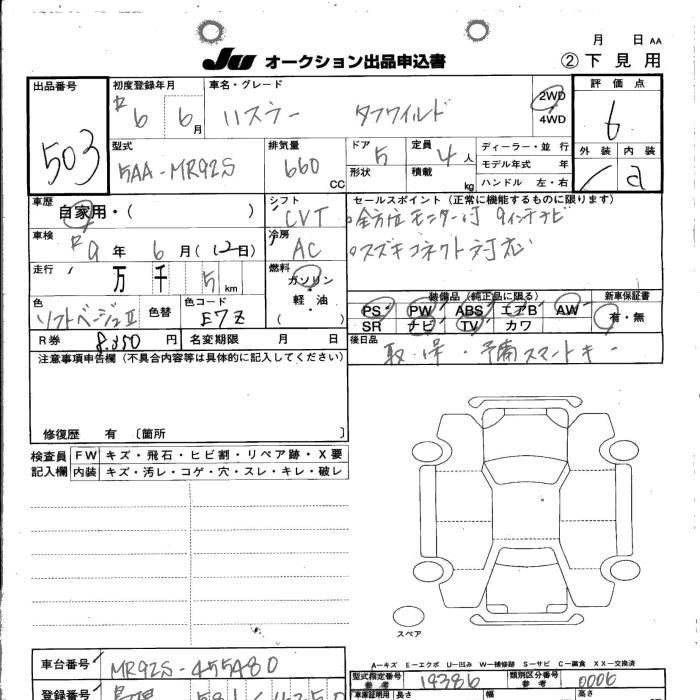 月 日 AA
JU オークション出品申込書 ②下見用
出品番号 503
初度登録年月 R6 6月
車名・グレード ハスラー タフワイルド
2WD
4WD
評価点 6
外装 内装 a
型式 5AA-MR92S
排気量 660 CC
ドア 5
形状
定員 4人
積載 kg
ディーラー・並行
モデル年式 年
ハンドル 左・右
車歴 自家用・(
シフト CVT
セールスポイント(正常に機能するものに限ります)
全方位モニター付 9インチナビ
スズキコネクト対応
車検 R9年 6月(12日)
冷房 AC
走行 万 千 5 km
燃料 ガソリン
軽・油
( )
色 ソフトベージュⅡ 色替
色コード E7Z
装備品(純正品に限る)
PS PW ABS エアB AW
SR ナビ TV カワ
新車保証書 有・無
R券 8,350円
名変期限 月 日
後日品 取・保・予備スマートキー
注意事項申告欄(不具合内容等は具体的に記入してください)
修復歴 有 〔箇所 〕
検査員記入欄
FW キズ・飛石・ヒビ割・リペア跡・X要
内装 キズ・汚レ・コゲ・穴・スレ・キレ・破レ
スペア
A-キズ E-エクボ U-凹み W-補修跡 S-サビ C-腐食 XX-交換済
車台番号 MR92S-455480
型式指定番号 参考 19386
類別区分番号 参考 0006
登録番号
車車証明用 長さ 幅 高さ